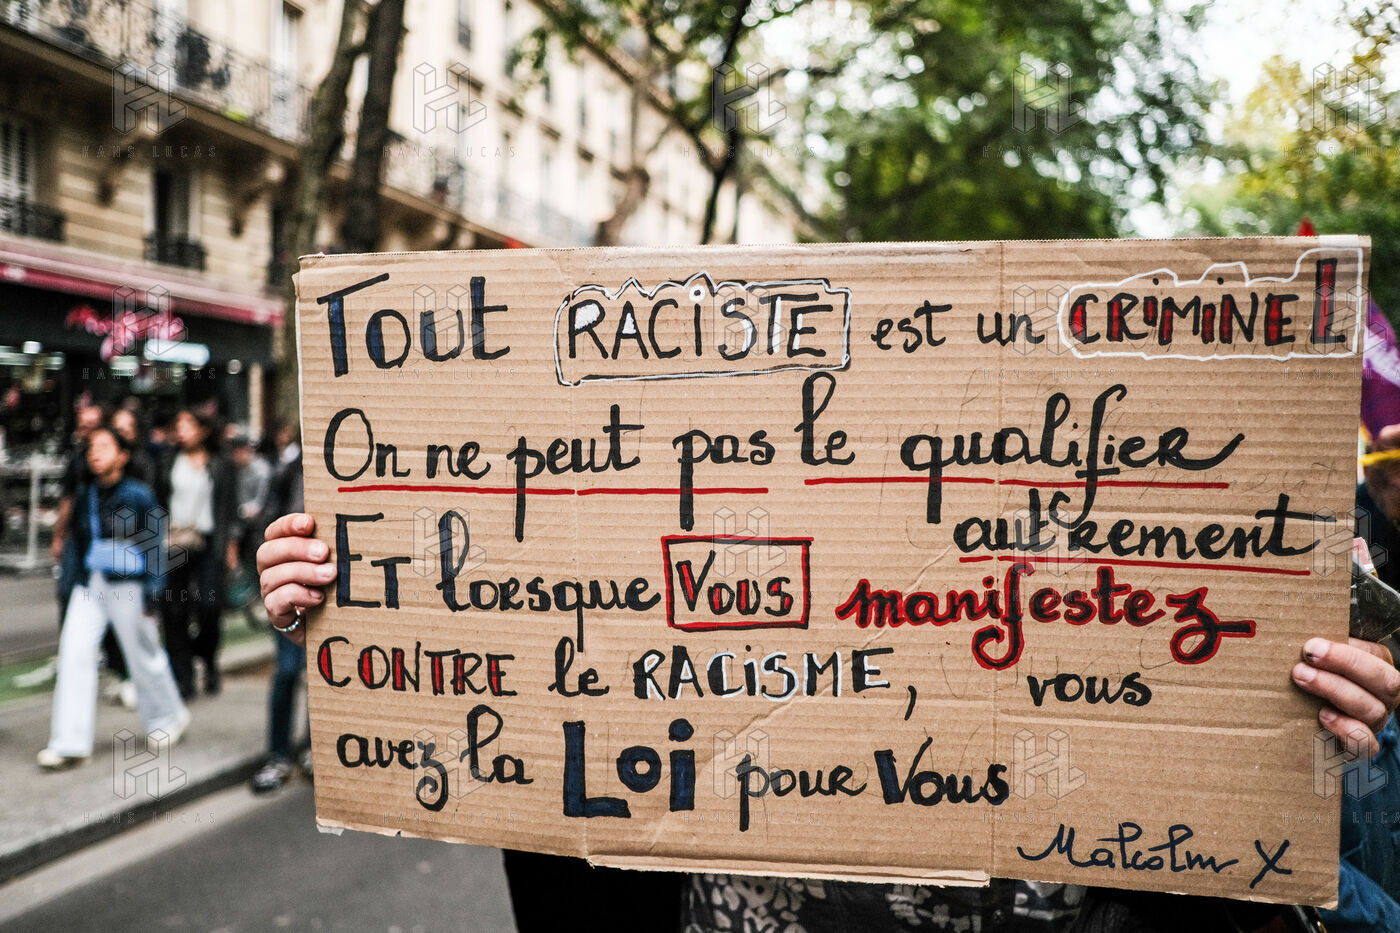 Tout RACISTE est un CRIMINEL
On ne peut pas le qualifier
autrement
Et lorsque Vous manifestez
CONTRE le RACISME, vous
avez la Loi pour Vous
Malcolm X
HANS LUCAS